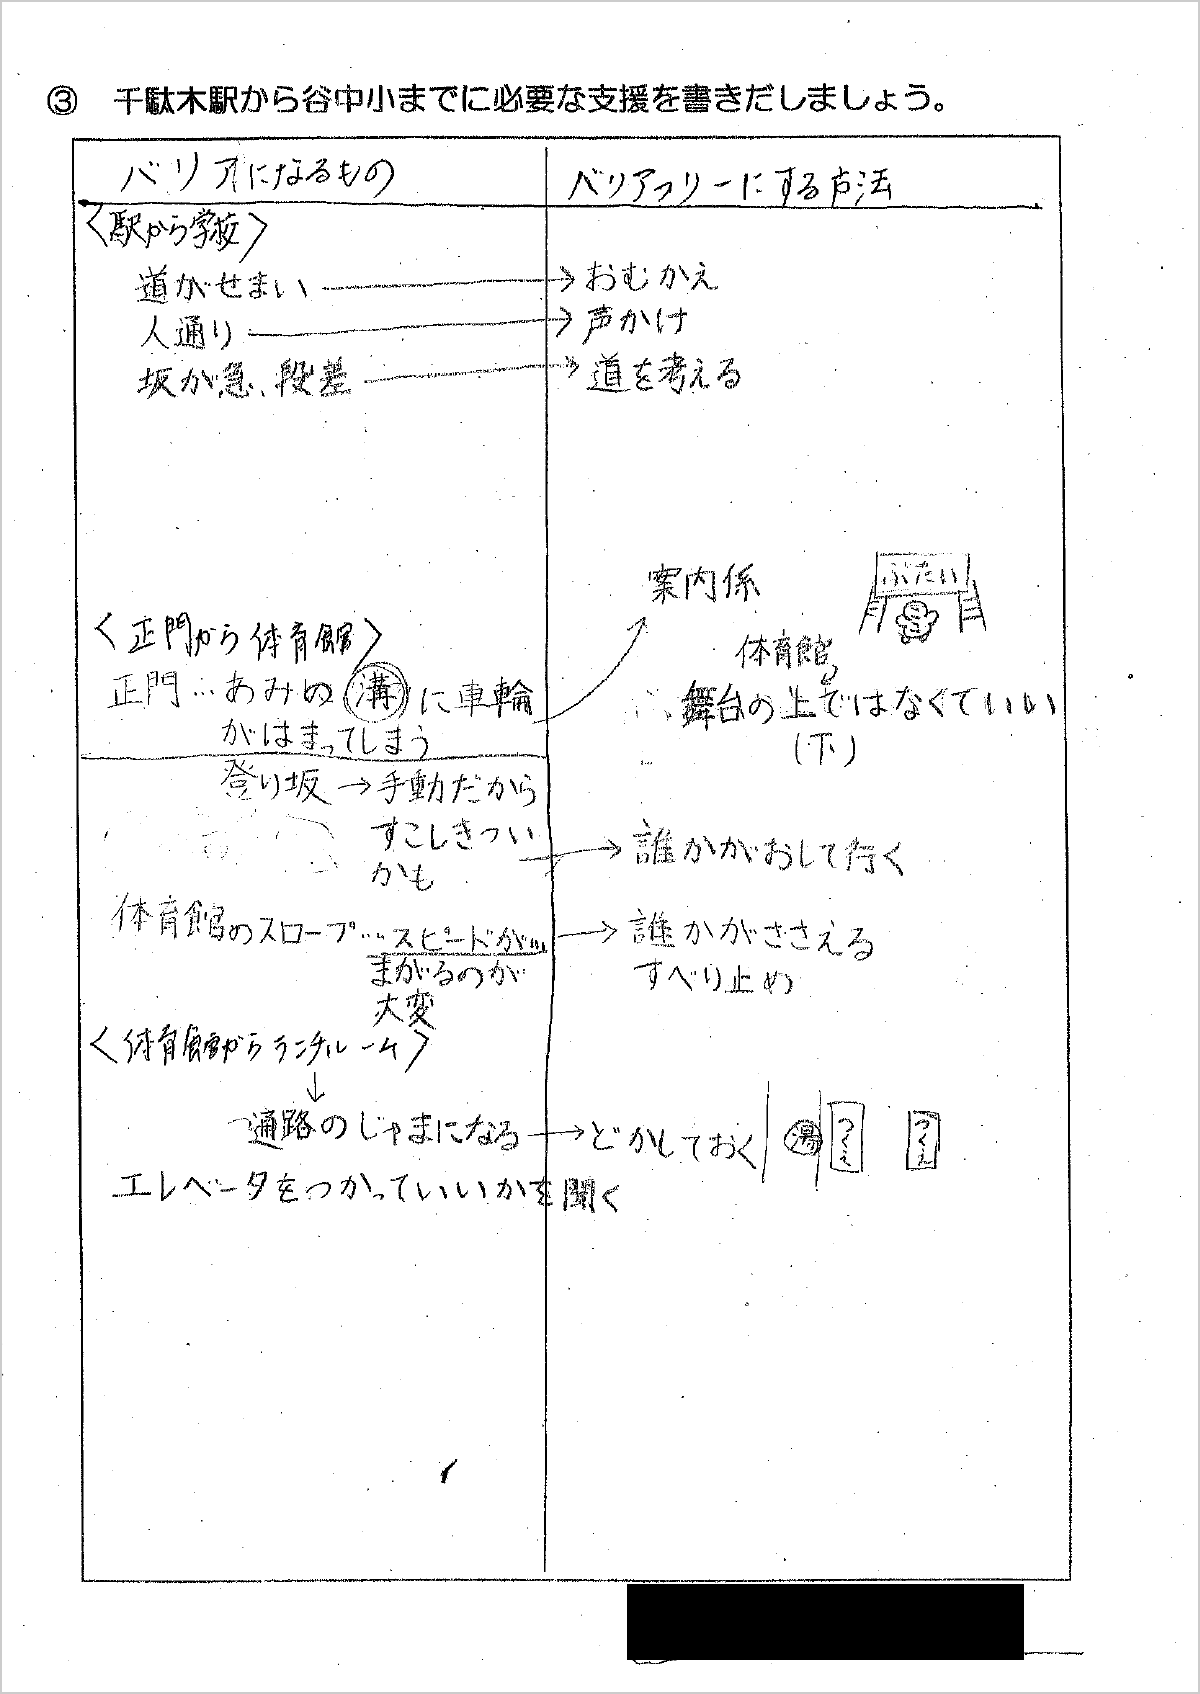 ③ 千駄木駅から谷中小までに必要な支援を書きだしましょう。
バリアになるもの
バリアフリーにする方法
〈駅から学校〉
道がせまい → おむかえ
人通り → 声かけ
坂が急、段差 → 道を考える
〈正門から体育館〉
正門…あみの溝に車輪
がはまってしまう
案内係
ぶたい
体育館
舞台の上ではなくていい
(下)
登り坂→手動だから
すこしきつい
かも
→ 誰かがおして行く
体育館のスロープ…スピードが…
まがるのが
大変
→ 誰かがささえる
すべり止め
〈体育館からランチルーム〉
↓
通路のじゃまになる → どかしておく
湯
つくえ
つくえ
エレベータをつかっていいかを聞く